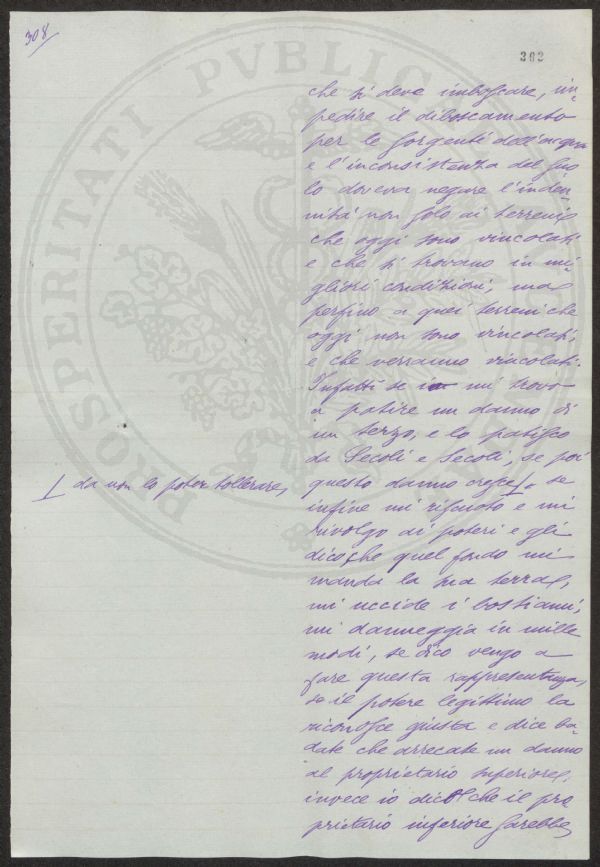 308
393
PROSPERITATI PUBLICAE
che si deve imboscare, im-
pedire il diboscamento
per le sorgenti dell'acqua
e l'inconsistenza del suo
lo doveva negare l'inden-
nità non solo ai terreni
che oggi sono vincolati
e che si trovano in mi-
gliori condizioni, ma
perfino a quei terreni che
oggi non sono vincolati,
e che verranno vincolati.
Infatti se io mi trovo
a patire un danno di
un terzo, e lo patisco
da Secoli e Secoli, se poi
questo danno cresce, se
da non lo poter tollerare,
infine mi rifiuto e mi
rivolgo ai poteri e gli
dico, che quel fondo mi
manda la sua terra,
mi uccide i bostiami,
mi danneggia in mille
modi, se dico vengo a
fare questa rappresentanza,
se il potere legittimo la
riconosce giusta e dice ba-
date che arrecate un danno
al proprietario superiore,
invece io dico che il pro
prietario inferiore sarebbe